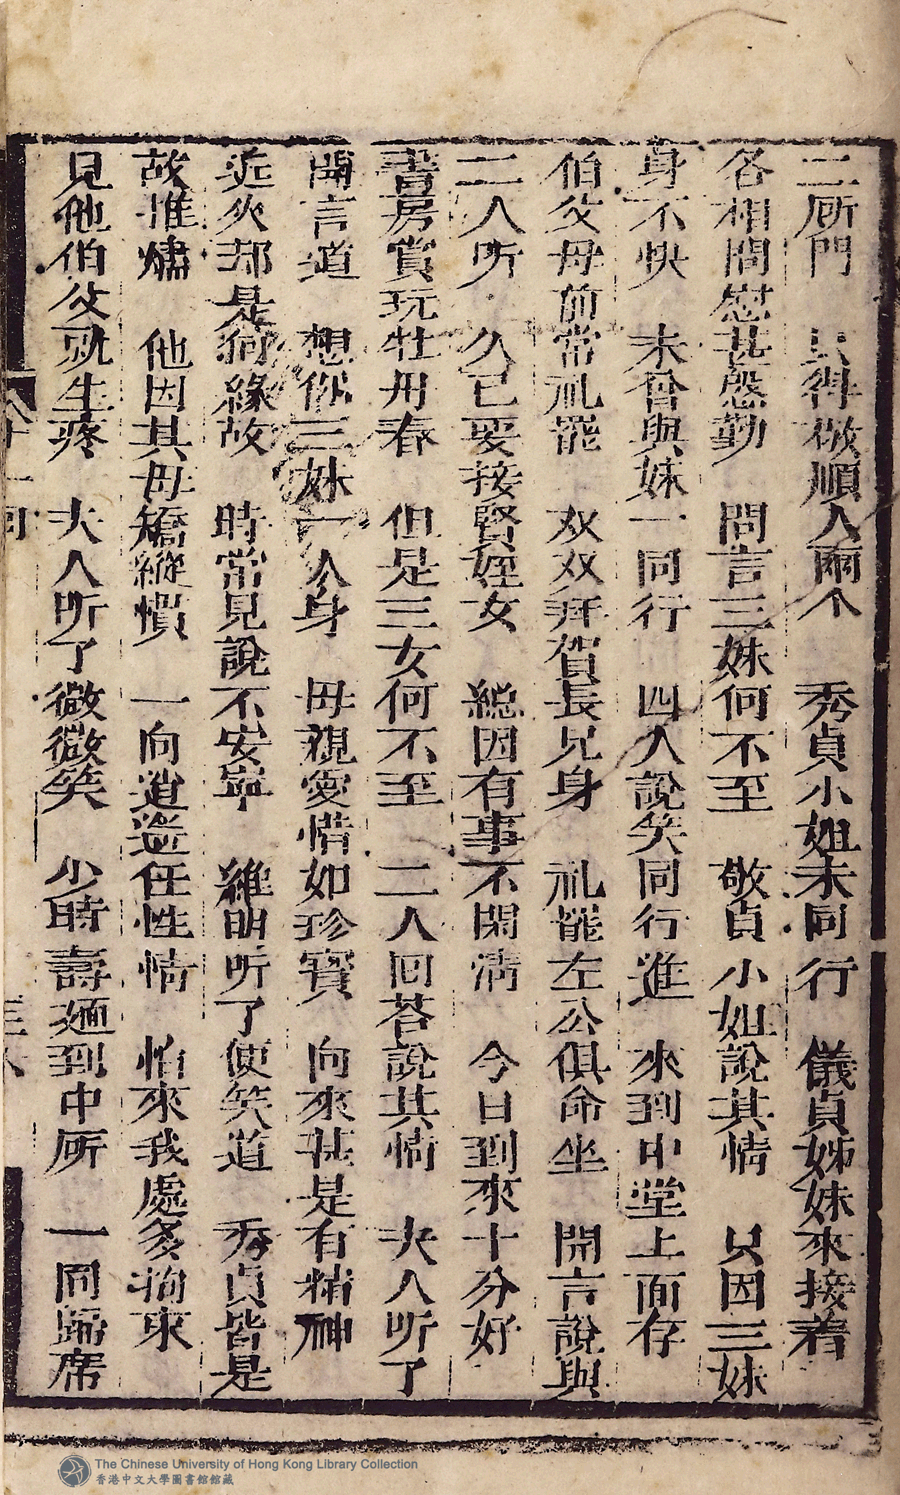 二厛門　只得敬順入兩个　秀貞小姐未同行　儀貞姊妹來接着
各相問慰甚慇勤　問言三妹何不至　敬貞小姐說其情　只因三妹
身不快　未會與妹一同行　四人說笑同行進　來到中堂上面存
伯父母前常礼罷　双双拜賀長兄身　礼罷左公俱命坐　開言說與
二人听　久已要接賢姪女　總因有事不閑清　今日到來十分好
書房賞玩牡丹春　但是三女何不至　二人回荅說其情　夫人听了
開言道　想你三妹一人身　母親愛惜如珍寳　向來甚是有精神
近來却是何緣故　時常見說不安寧　維明听了使笑道　秀貞皆是
故推　他因其母矯縱慣　一向逍遙任性情　怕來我處多拘束
見他伯父就生疼　夫人听了微微笑　少時壽麺到中厛　一同歸席
十一回
The Chinese University of Hong Kong Library Collection
香港中文大學圖書館館藏